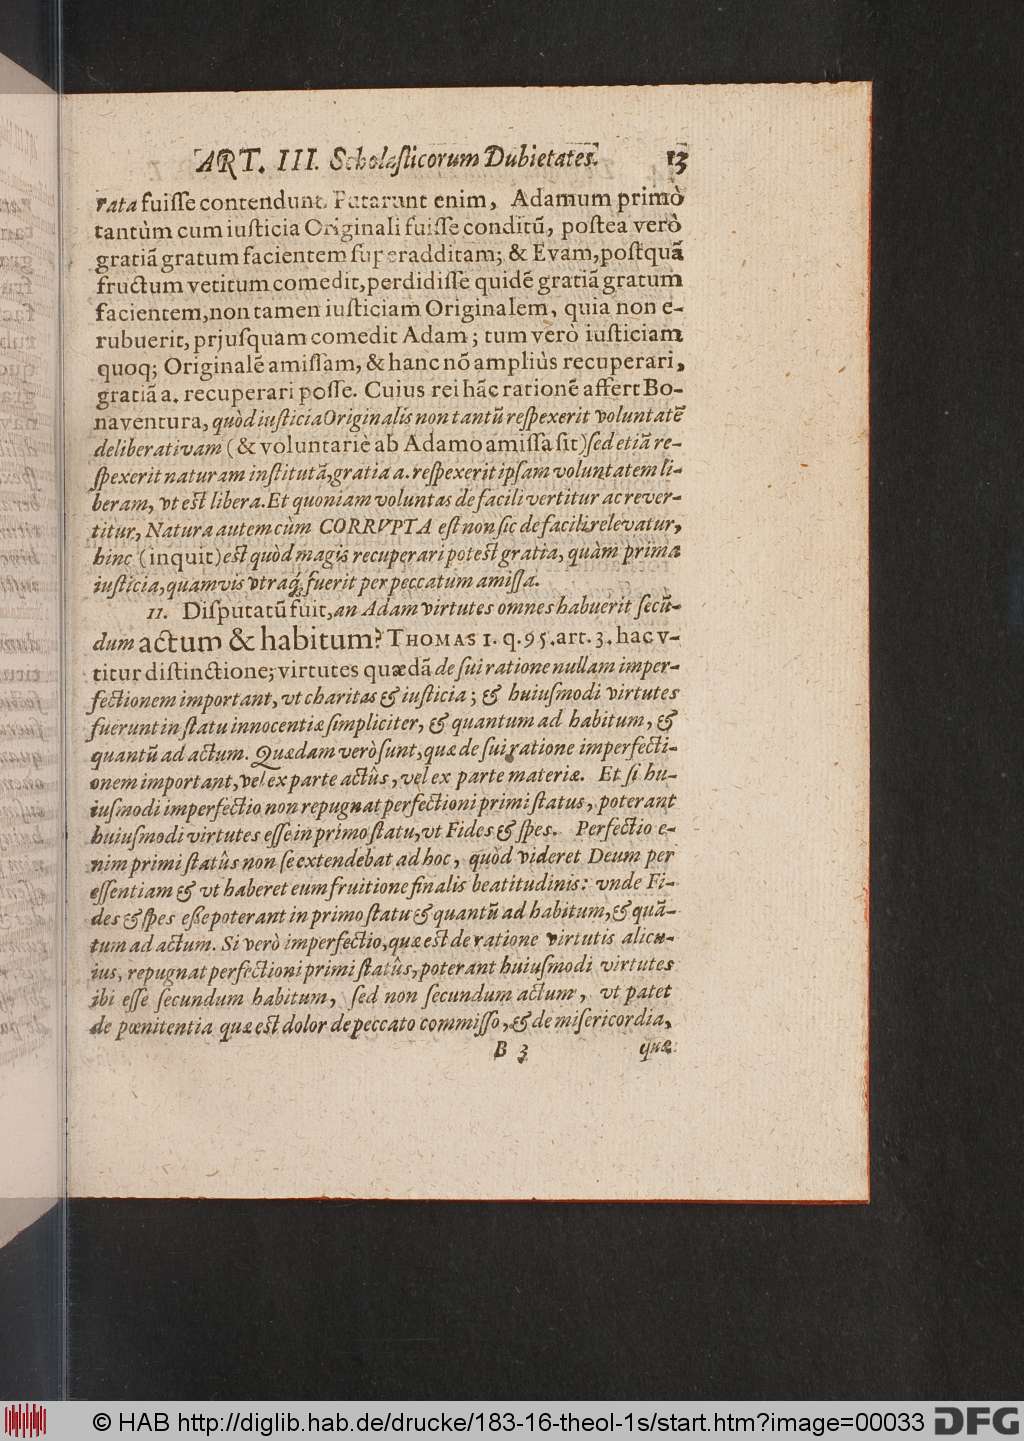 ART. III. Scholasticorum Dubietates. 13
rata fuiſſe contendunt. Putarunt enim, Adamum primò
tantùm cum iuſticia Originali fuiſſe conditū, poſtea verò
gratiā gratum facientem ſuperadditam; & Evam, poſtquā
fructum vetitum comedit, perdidiſſe quidē gratiā gratum
facientem, non tamen iuſticiam Originalem, quia non e-
rubuerit, prjuſquam comedit Adam; tum verò iuſticiam
quoq; Originalē amiſſam, & hanc nō ampliùs recuperari,
gratiā a. recuperari poſſe. Cuius rei hāc rationē affert Bo-
naventura, quòd iuſticia Originalis non tantū reſpexerit voluntatē
deliberativam (& voluntariè ab Adamo amiſſa ſit) ſed etiā re-
ſpexerit naturam inſtitutā, gratia a. reſpexerit ipſam voluntatem li-
beram, vt eſt libera. Et quoniam voluntas de facili vertitur ac rever-
titur, Natura autem cùm CORRVPTA eſt non ſic de facili relevatur,
hinc (inquit) eſt quòd magis recuperari poteſt gratia, quàm prima
iuſticia, quamvis vtraq; fuerit per peccatum amiſſa.
11. Diſputatū fuit, an Adam virtutes omnes habuerit ſecū-
dum actum & habitum? THOMAS 1. q. 95. art. 3. hac v-
titur diſtinctione; virtutes quædā de ſui ratione nullam imper-
fectionem important, vt charitas & iuſticia; & huiuſmodi virtutes
fuerunt in ſtatu innocentiæ ſimpliciter, & quantum ad habitum, &
quantū ad actum. Quædam verò ſunt, quæ de ſui ratione imperfecti-
onem important, vel ex parte actûs, vel ex parte materiæ. Et ſi hu-
iuſmodi imperfectio non repugnat perfectioni primi ſtatus, poterant
huiuſmodi virtutes eſſe in primo ſtatu, vt Fides & ſpes. Perfectio e-
nim primi ſtatûs non ſe extendebat ad hoc, quòd videret Deum per
eſſentiam & vt haberet eum fruitione finalis beatitudinis: vnde Fi-
des & ſpes eſſe poterant in primo ſtatu & quantū ad habitum, & quā-
tum ad actum. Si verò imperfectio, quæ eſt de ratione virtutis alicu-
ius, repugnat perfectioni primi ſtatûs, poterant huiuſmodi virtutes
ibi eſſe ſecundum habitum, ſed non ſecundum actum, vt patet
de pœnitentia quæ eſt dolor de peccato commiſſo, & de miſericordia,
B 3 quæ
© HAB http://diglib.hab.de/drucke/183-16-theol-1s/start.htm?image=00033 DFG